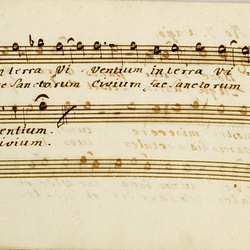 n terra Vi - ventium in terra Vi
ac Sanctorum Civium ac Sanctorum
entium.
ivium.